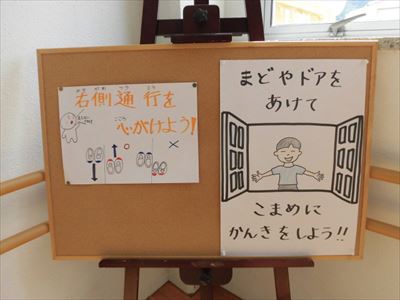 右側通行を
心がけよう!
まどやドアを
あけて
こまめに
かんきをしよう!!